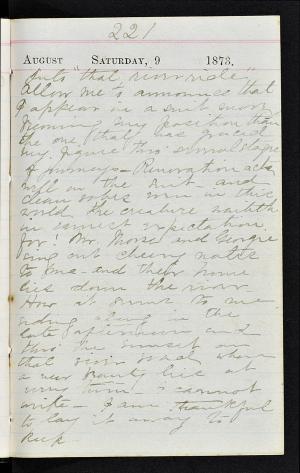 221
August Saturday, 9 1873.
into "that river ride"
allow me to announce that
I appear in a suit more
becoming my position than
the one (that) has graced
my figure thro' several stages
of journeys - Renovation acts
well on the suit - and
clean robes seen in this
world the creature waiteth
in earnest expectation
for! Mr. Morse and George
sing out cheery notes
to me - and their home
lies down the river
How it seems to me
riding along in the
late afternoon and
thro' the sunset on
that river road where
a new beauty lies at
every turn - I cannot
write - I am thankful
to lay it away to
keep.